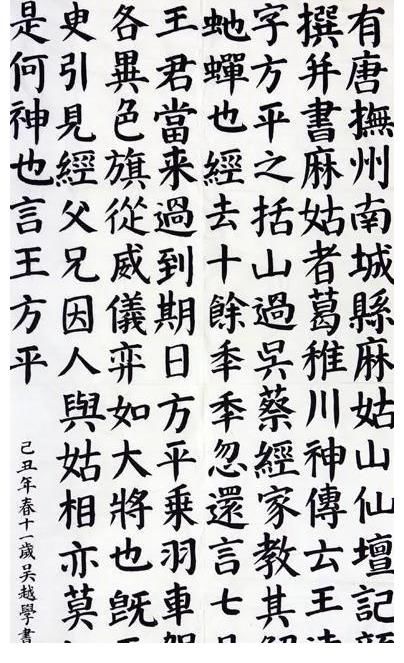 有唐撫州南城縣麻姑山仙壇記
撰并書麻姑者葛稚川神傳云王
字方平之括山過吳蔡經家教其
虵蟬也經去十餘秊秊忽還言七
王君當来過到期日方平乗羽車
各異色旗從威儀弈如大將也旣
臾引見經父兄因人與姑相亦莫
是何神也言王方平
己丑年春十一歲吳越學書